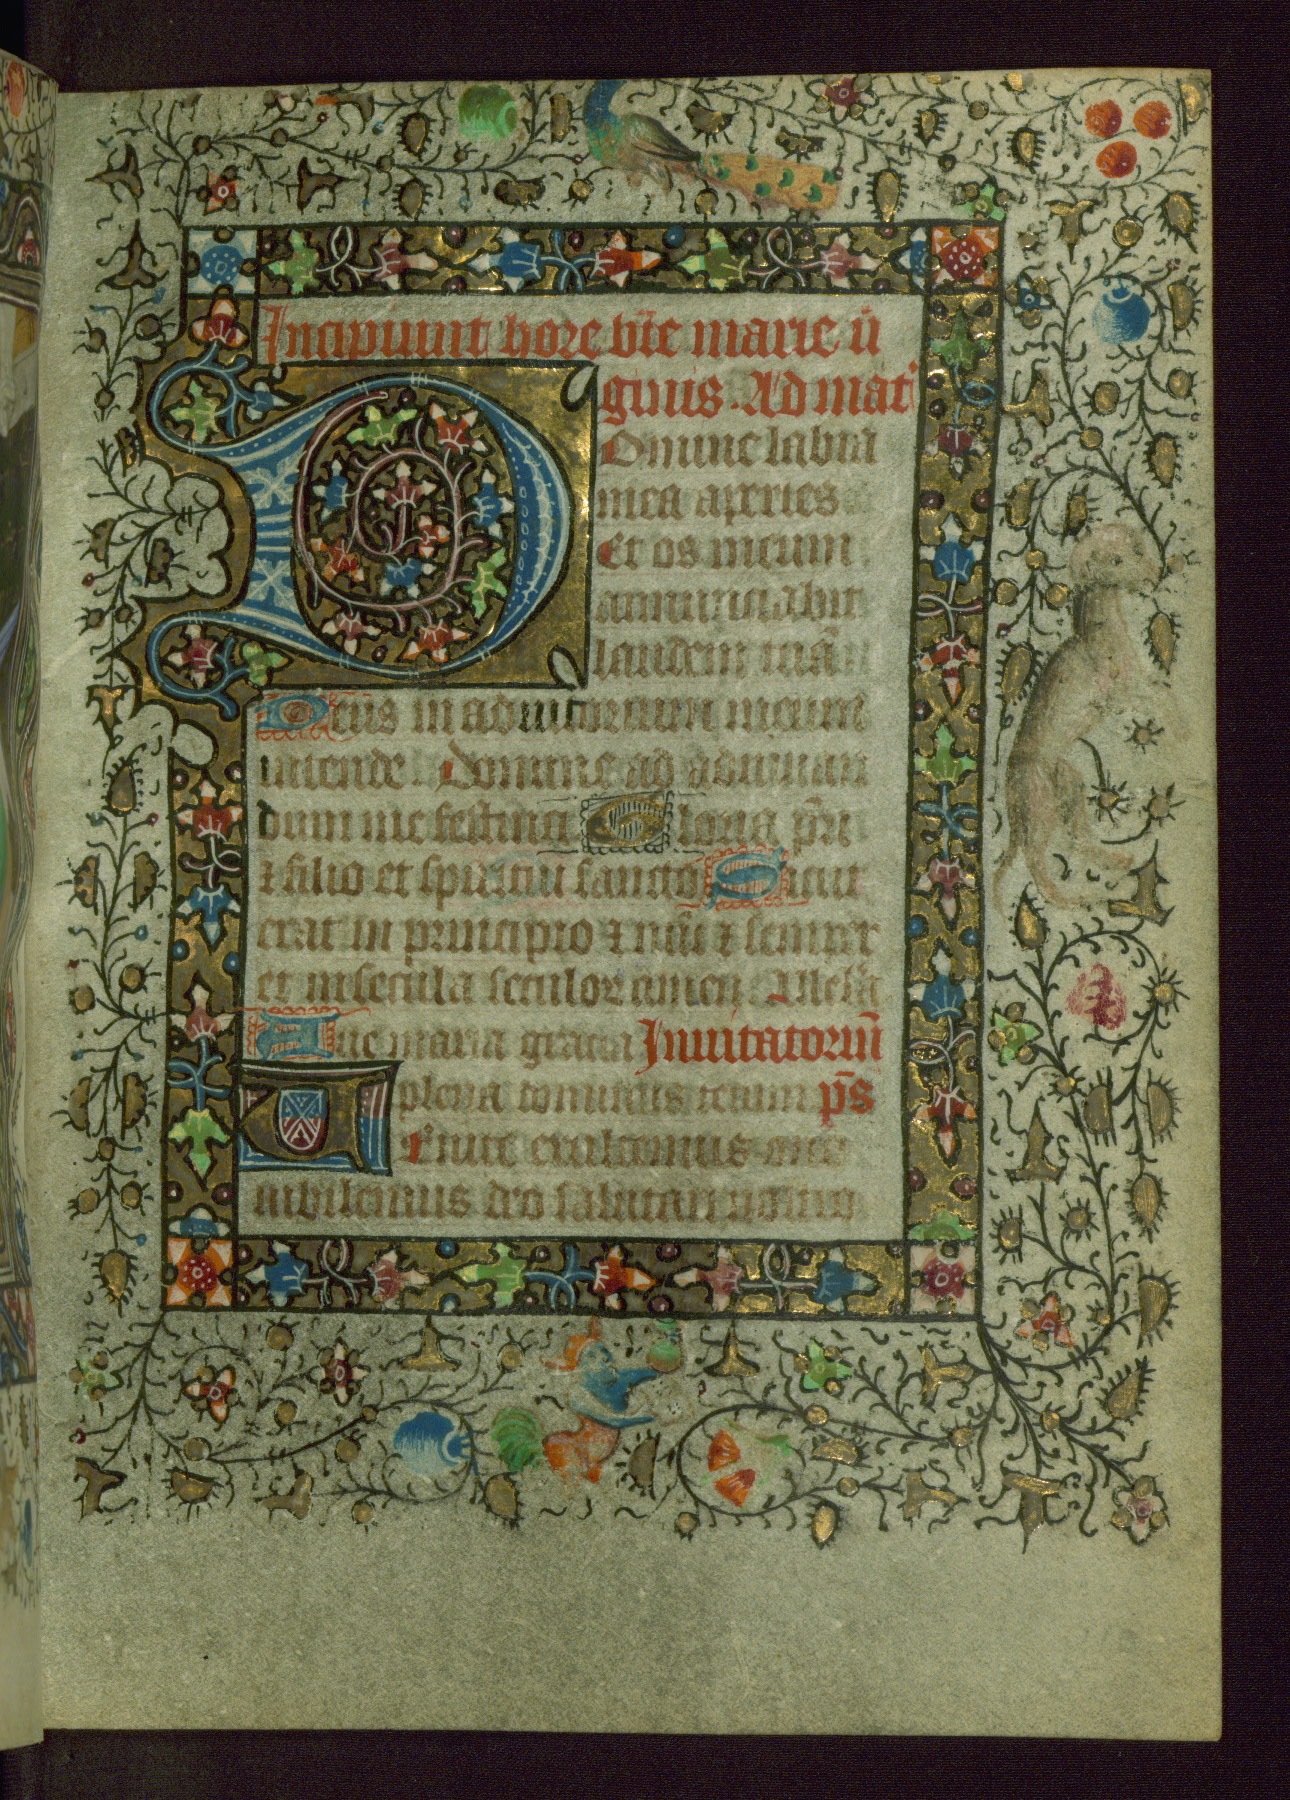 Incipiunt hore bt̄e marie ū
ginis. Ad mat'
Domine labia
mea aperies
Et os meum
annunciabit
laudem tuā
Deus in adiutorium meum
intende Domine ad adiuuan
dum me festina Gloria pr̄i
⁊ filio et spiritui sancto Sicut
erat in principio ⁊ nūc ⁊ semper
et in secula seculor amen Allel'a
Aue maria gracia Inuitatoriū
plena dominus tecum p̄s
Enite exultemus
iubilemus deo salutari nostro